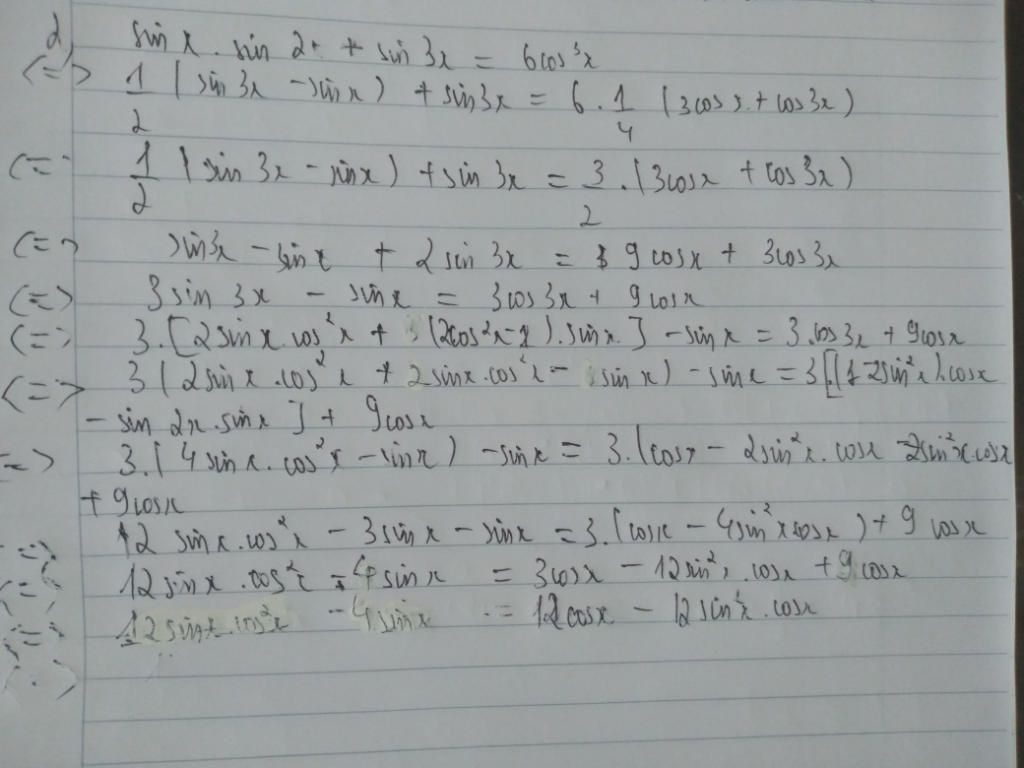 d,
sin x . sin 2 + sin 3x = 6cos³x
<=> 1/2 (sin 3x - sin x) + sin3x = 6 . 1/4 (3cos x + cos 3x)
<=> 1/2 (sin 3x - sin x) + sin 3x = 3/2 . (3cos x + cos 3x)
<=> sin3x - sin x + 2 sin 3x = 9 cos x + 3cos 3x
<=> 3 sin 3x - sin x = 3cos 3x + 9 cos x
<=> 3.[2 sin x. cos²x + (2cos²x-1).sin x] - sin x = 3.cos 3x + 9cos x
<=> 3 (2 sin x .cos²x + 2 sin x.cos²x - sin x) - sin x = 3[(1-2sin²x).cos x
- sin 2x . sin x] + 9cos x
=> 3.(4 sin x . cos²x - sin x) - sin x = 3.(cos x - 2sin²x. cos x - 2sin²x.cos x
+ 9 cos x
<=> 12 sin x.cos²x - 3 sin x - sin x = 3.(cos x - 4sin²x cos x) + 9 cos x
<=> 12 sin x . cos²x - 4 sin x = 3cos x - 12 sin²x . cos x + 9 cos x
<=> 12 sin x.cos²x - 4 sin x = 12 cos x - 12 sin²x . cos x